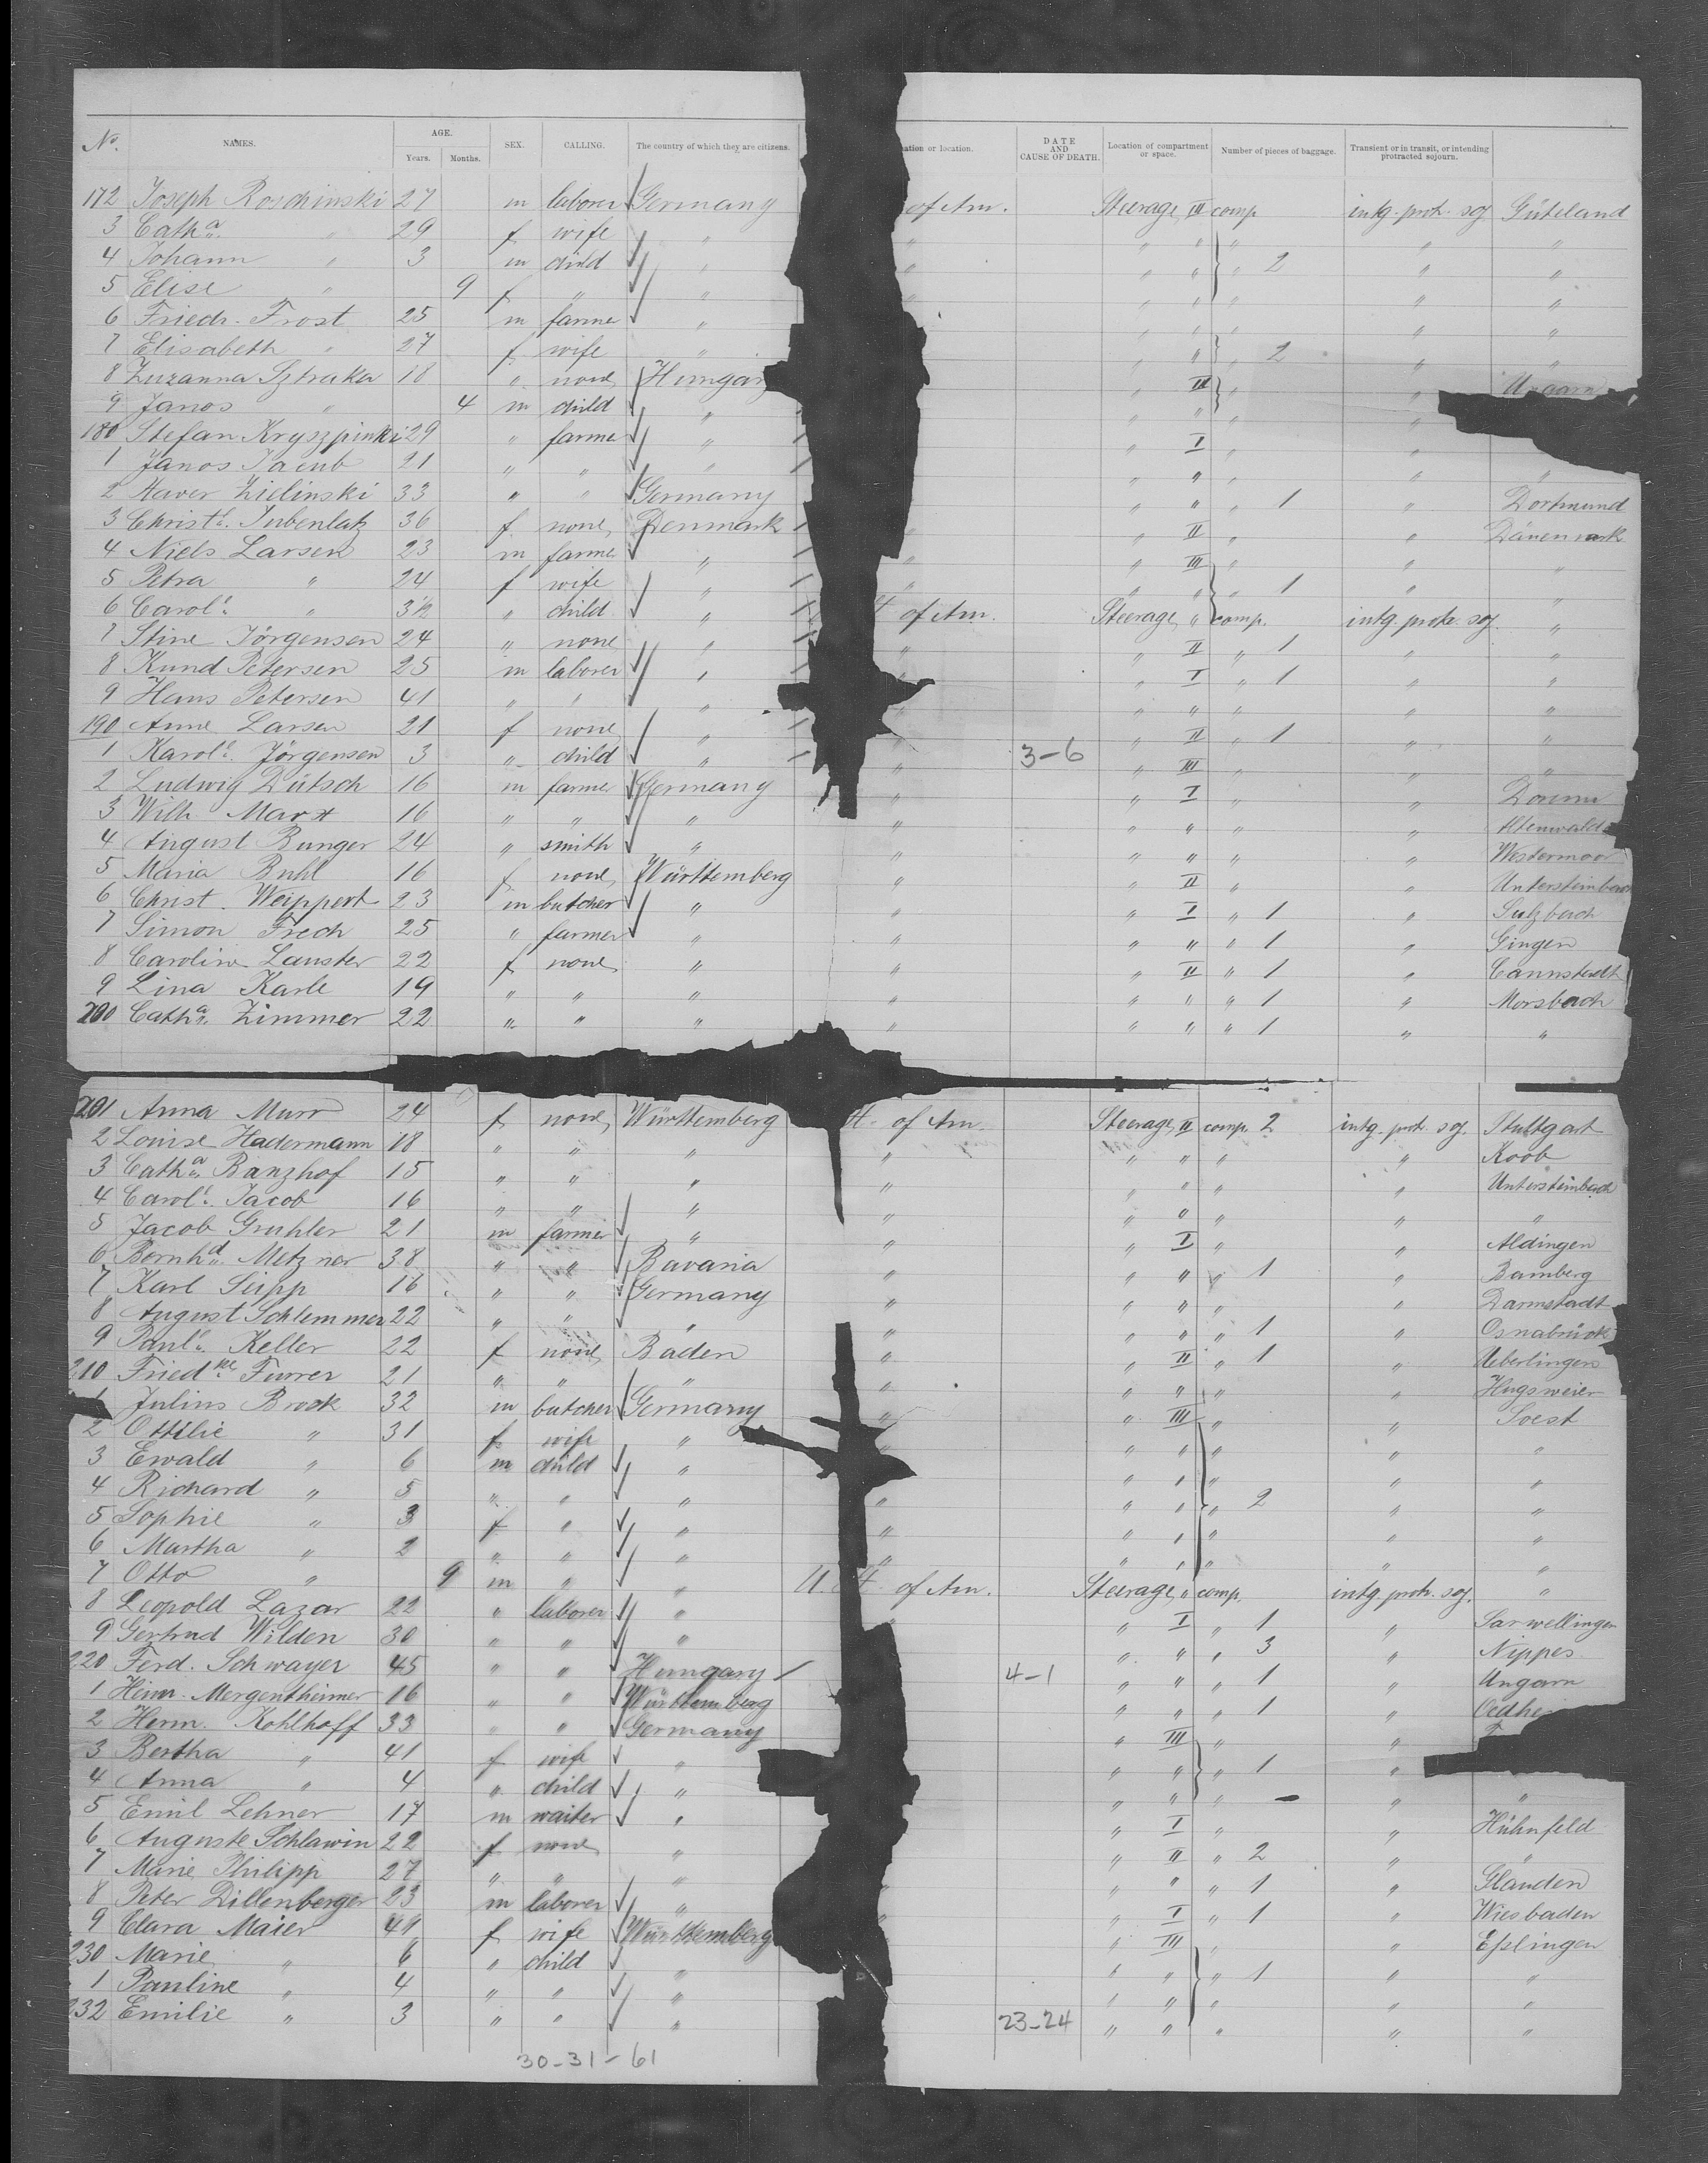 No. NAMES. AGE. Years. Months. SEX. CALLING. The country of which they are citizens. ation or location. DATE AND CAUSE OF DEATH. Location of compartment or space. Number of pieces of baggage. Transient or in transit, or intending protracted sojourn.
172 Joseph Roschinski 27 m laborer Germany of Am. Steerage III comp intg. prot. soj Güteland
3 Catha. " 29 f wife " " " " " " "
4 Johann " 3 m child " " " " " 2 " "
5 Elise " 9 f " " " " " " "
6 Friedr. Frost 25 m farme " " " " " "
7 Elisabeth " 27 f wife " " " " 2 " "
8 Zuzanna Sztraka 18 " none Hungar " III " " Ungarn
9 Janos " 4 m child " " " " "
180 Stefan Kryszpinki 29 " farme " " I " "
1 Janos Jacub 21 " " " " " " "
2 Xaver Zielinski 33 " " Germany " " " 1 " Dortmund
3 Christe. Jubenlatz 36 f none Denmark " " II " " Dänenmark
4 Niels Larsen 23 m farme " " III " " "
5 Petra " 24 f wife " " " " " 1 " "
6 Carole. " 3½ " child " of Am. Steerage " comp. intg. prot. soj. "
7 Stine Jörgensen 24 " none " " " II " 1 " "
8 Kund Petersen 25 m laborer " " I " 1 " "
9 Hans Petersen 41 " " " " " " " " "
190 Anne Larsen 21 f none " " " II " 1 " "
1 Karole. Jörgensen 3 " child " " 3-6 " III " " "
2 Ludwig Dütsch 16 m farme Germany " " I " " Dorum
3 Wilh. Marx 16 " " " " " " " " Altenwald
4 August Bunger 24 " smith " " " " " " Westermoor
5 Maria Buhl 16 f none Württemberg " " II " " Untersteinbach
6 Christ. Weippert 23 m butcher " " " I " 1 " Sulzbach
7 Simon Frech 25 " farmer " " " " " 1 " Gingen
8 Caroline Lauster 22 f none " " " II " 1 " Cannstadt
9 Lina Karle 19 " " " " " " " 1 " Morsbach
200 Catha. Zimmer 22 " " " " " " " 1 " "
201 Anna Murr 24 f none Württemberg of Am. Steerage II comp. 2 intg. prot. soj. Stuttgart
2 Louise Hadermann 18 " " " " " " " " Koob
3 Catha. Banzhof 15 " " " " " " " " Untersteinbach
4 Carole. Jacob 16 " " " " " " " " "
5 Jacob Gruhler 21 m farmer " " " I " " Aldingen
6 Bernhd. Metzner 38 " " Bavaria " " " " 1 " Bamberg
7 Karl Seipp 16 " " Germany " " " " " Darmstadt
8 August Schlemmer 22 " " " " " " " 1 " Osnabrück
9 Paule. Keller 22 f none Baden " " II " 1 " Ueberlingen
210 Friedke. Furrer 21 " " " " " " " " Hugsweier
1 Julius Brock 32 m butcher Germany " " III " " Soest
2 Ottilie " 31 f wife " " " " " "
3 Ewald " 6 m child " " " " " "
4 Richard " 5 " " " " " " " 2 " "
5 Sophie " 3 f " " " " " " " "
6 Martha " 2 " " " " " " " " "
7 Otto " 9 m " " U. of Am. Steerage " comp. intg. prot. soj. "
8 Leopold Lazar 22 " laborer " " " I " 1 " Sarwellingen
9 Gertrud Wilden 30 " " " " " " 3 " Nippes
220 Ferd. Schwayer 45 " " Hungary 4-1 " " " 1 " Ungarn
1 Heinr. Mergentheimer 16 " " Württemberg " " " 1 " Oedhei
2 Herm. Kohlhoff 33 " " Germany " III " "
3 Bertha " 41 f wife " " " " 1 "
4 Anna " 4 " child " " " " - " "
5 Emil Lehner 17 m waiter " " I " " Hühnfeld
6 Auguste Schlawin 22 f none " " II " 2 " "
7 Marie Philipp 27 " " " " " " 1 " Glanden
8 Peter Dillenberger 23 m laborer " " I " 1 " Wiesbaden
9 Clara Maier 41 f wife Württemberg " III " " Eßlingen
230 Marie " 6 " child " " " " 1 " "
1 Pauline " 4 " " " " " " " "
232 Emilie " 3 " " " 23-24 " " " " "
30-31-61